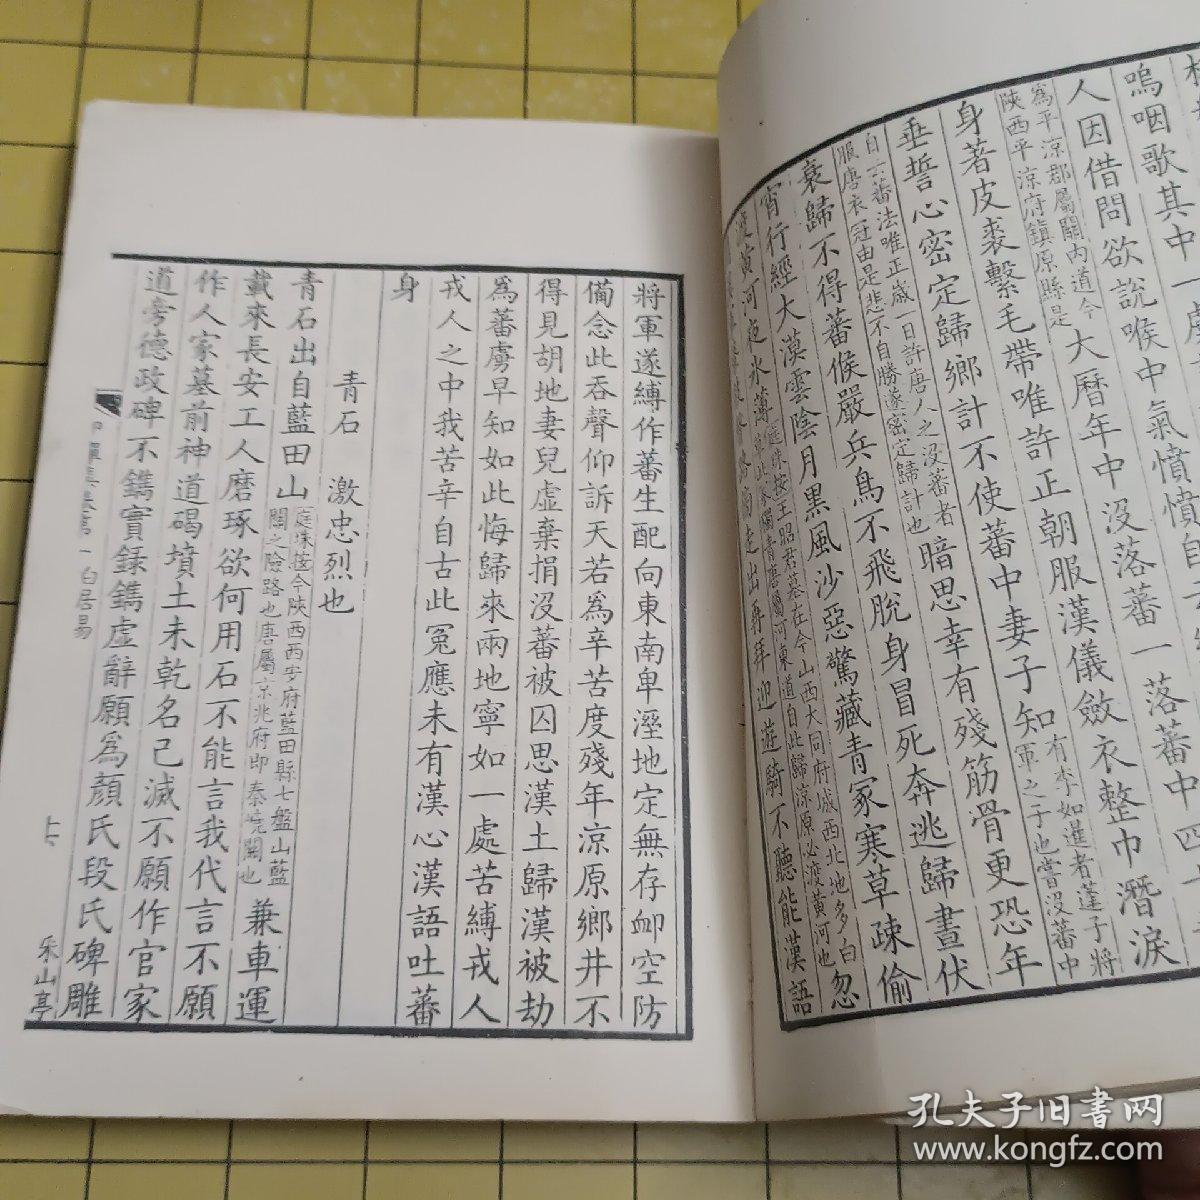 嗚咽歌其中一虜
人因借問欲說喉中氣憤憤自
為平涼郡屬關内道今
陝西平涼府鎮原縣是
大曆年中没落蕃一落蕃中四十
身著皮裘繫毛帶唯許正朝服漢儀斂衣整巾潛淚
垂誓心密定歸鄉計不使蕃中妻子知
有李如暹者蓬子將
軍之子也嘗没蕃中
自云蕃法唯正歲一日許唐人之没蕃者
服唐衣冠由是悲不自勝遂密定歸計也
暗思幸有殘筋骨更恐年
衰歸不得蕃候嚴兵鳥不飛脫身冒死奔逃歸晝伏
宵行經大漠雲陰月黑風沙惡驚藏青冢寒草疎偷
渡黃河夜水薄
庭珠按王昭君墓在今山西大同府城西北地多白
草此冢獨青唐屬河東道自此歸涼原必渡黃河也
忽
路傍走出再拜迎遊騎不聽能漢語
將軍遂縛作蕃生配向東南卑溼地定無存卹空防
備念此吞聲仰訴天若為辛苦度殘年涼原鄉井不
得見胡地妻兒虛棄捐没蕃被囚思漢土歸漢被劫
為蕃虜早知如此悔歸來兩地寧如一處苦縛戎人
戎人之中我苦辛自古此冤應未有漢心漢語吐蕃
身
青石　激忠烈也
青石出自藍田山
庭珠按今陝西西安府藍田縣七盤山藍
關之險路也唐屬京兆府即秦嶢關也
兼車運
載來長安工人磨琢欲何用石不能言我代言不願
作人家墓前神道碣墳土未乾名已滅不願作官家
道旁德政碑不鐫實録鐫虛辭願為顏氏段氏碑雕
中晚集卷第一 白居易
采山亭
孔夫子旧书网
www.kongfz.com